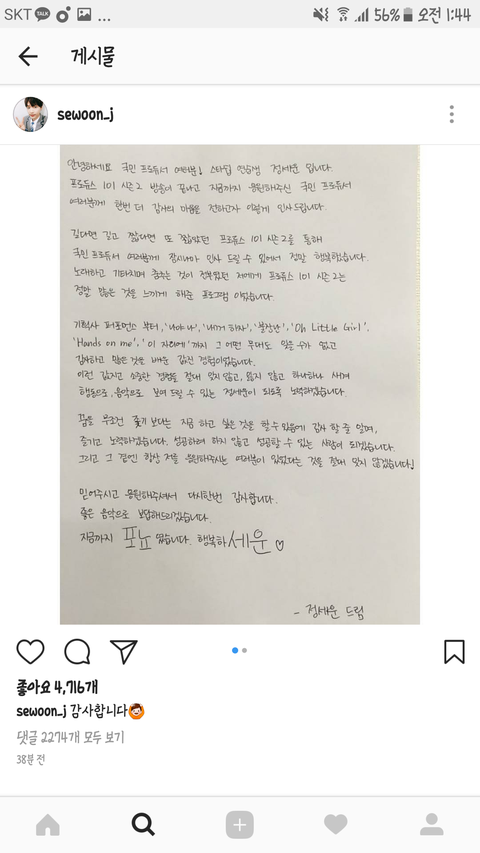 SKT TALK ... 56% 오전 1:44
게시물
sewoon_j
안녕하세요 국민 프로듀서 여러분! 스타쉽 연습생 정세운 입니다.
프로듀스 101 시즌2 방송이 끝나고 지금까지 응원해주신 국민 프로듀서
여러분께 한번 더 감사의 마음을 전하고자 이렇게 인사드립니다.
길다면 길고 짧다면 또 짧았던 프로듀스 101 시즌2를 통해
국민 프로듀서 여러분께 정세운이 인사 드릴 수 있어서 정말 행복했습니다.
노래하고 기타치며 춤추는 것이 전부였던 저에게 프로듀스 101 시즌2는
정말 많은 것을 느끼게 해준 프로그램 이었습니다.
기획사 퍼포먼스 부터, '나야 나', '내꺼 하자', '불장난', 'Oh Little Girl',
'Hands on me', '이 자리에' 까지 그 어떤 무대도 잊을 수가 없고
감사하고 많은 것을 배운 값진 경험이었습니다.
이런 값지고 소중한 경험을 절대 잊지 않고, 잃지 않고 하나하나 새겨
행동으로, 음악으로 보여 드릴 수 있는 정세운이 되도록 노력하겠습니다.
꿈을 무조건 좇기 보다는 지금 하고 싶은 것을 할 수 있음에 감사 할 줄 알며,
즐기고 노력하겠습니다. 성공하려 하지 않고 성공할 수 있는 사람이 되겠습니다.
그리고 그 곁엔 항상 저를 응원해주시는 여러분이 있었다는 것을 절대 잊지 않겠습니다!
믿어주시고 응원해주셔서 다시한번 감사합니다.
좋은 음악으로 보답해드리겠습니다.
지금까지 포뇨 였습니다. 행복하세운♡
- 정세운 드림
좋아요 4,716개
sewoon_j 감사합니다
댓글 2274개 모두 보기
38분 전